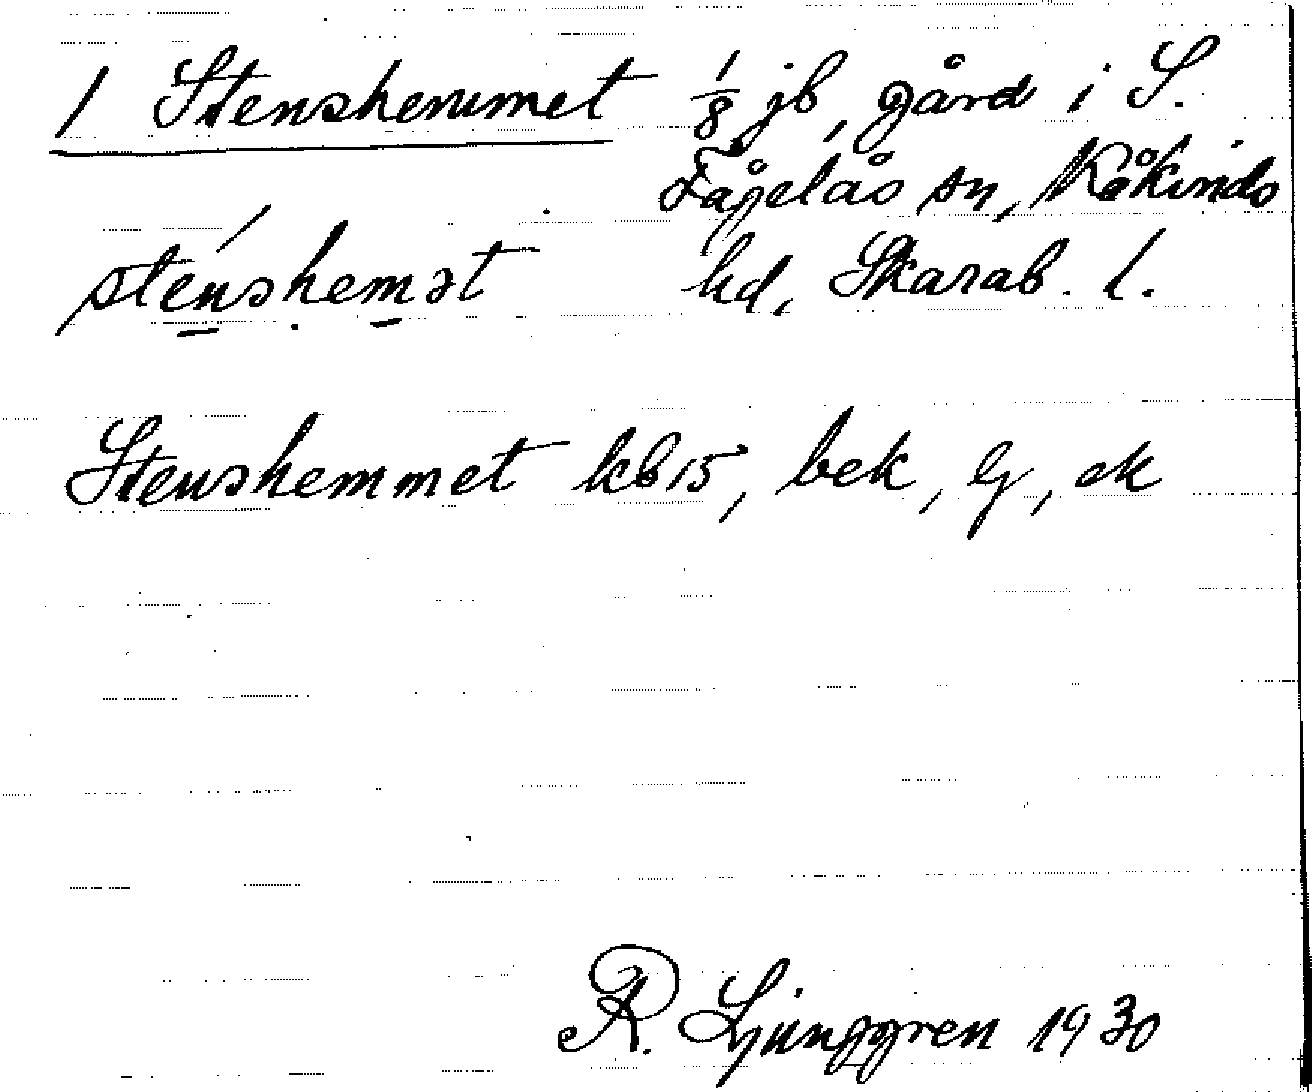 1 Stenshemmet 1/8 jb, gård i S.
Fågelås sn, Kåkinds
sténshemət hd, Skarab. l.
Stenshemmet kb 15, bek, lj, ek
R. Ljunggren 1930